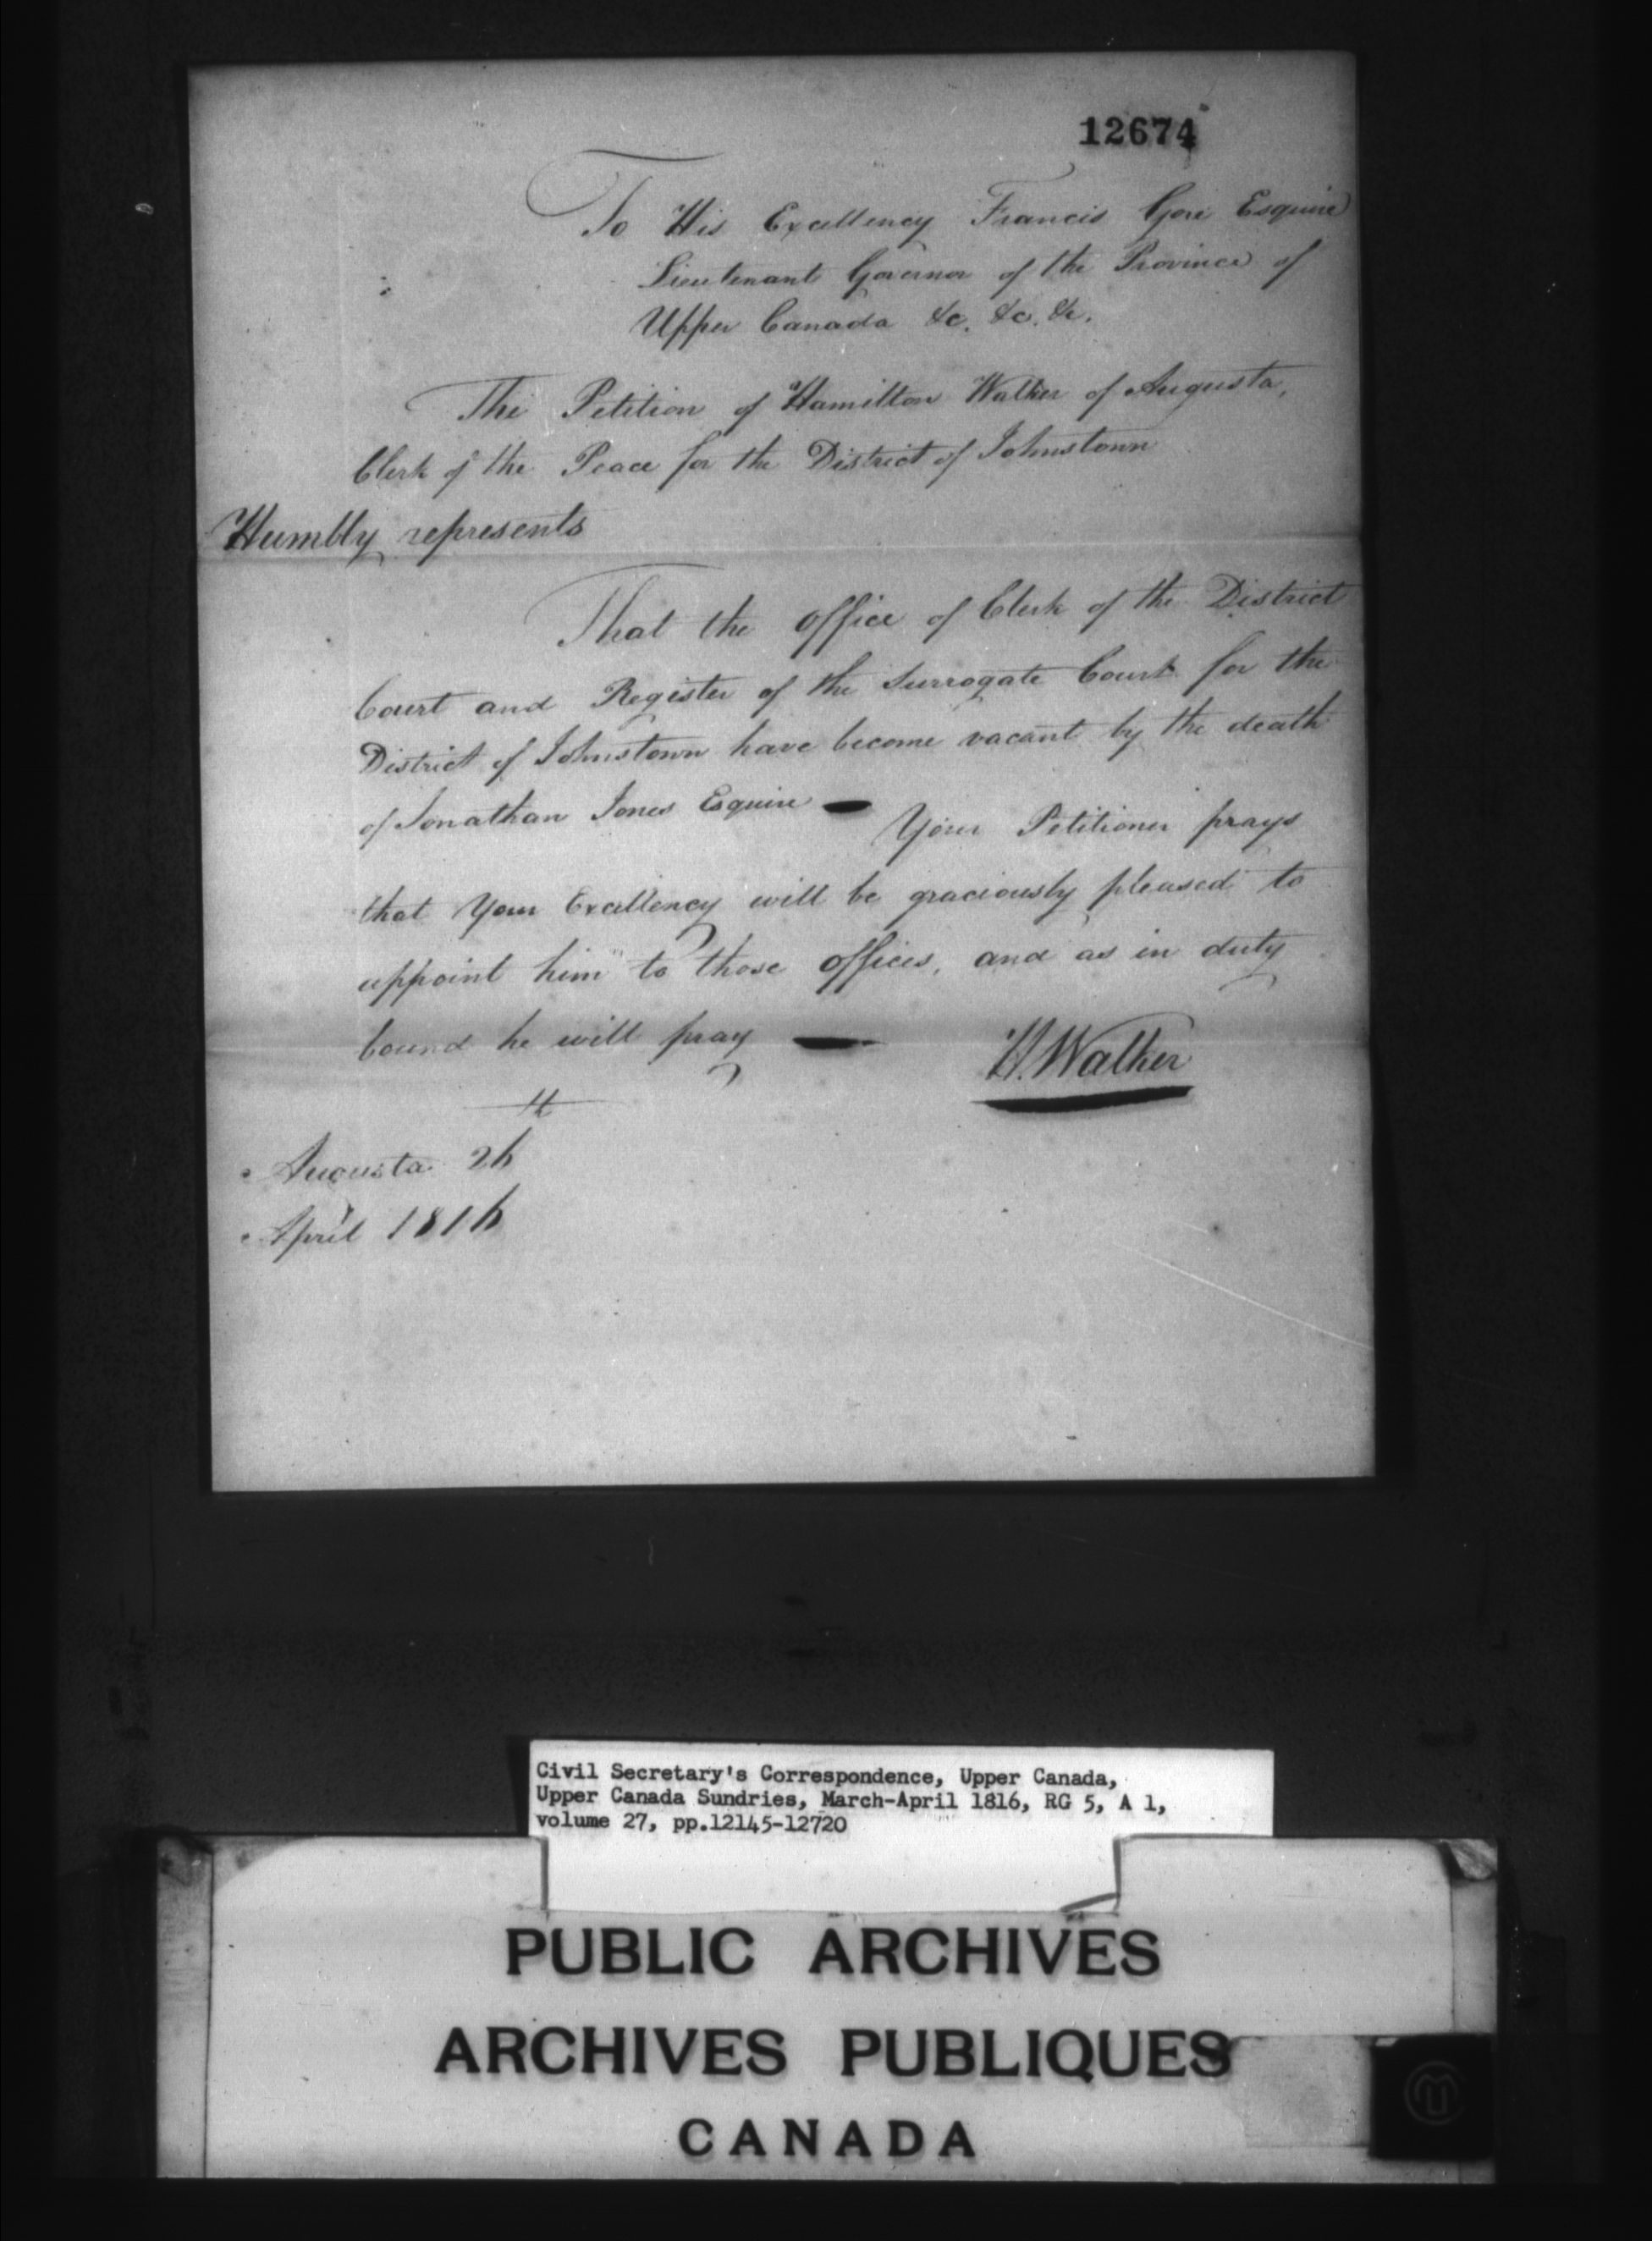 12674
To His Excellency Francis Gore Esquire
Lieutenant Governor of the Province of
Upper Canada &c. &c. &c.
The Petition of Hamilton Walker of Augusta,
Clerk of the Peace for the District of Johnstown
Humbly represents
That the office of Clerk of the District
Court and Register of the Surrogate Court for the
District of Johnstown have become vacant by the death
of Jonathan Jones Esquire — Your Petitioner prays
that Your Excellency will be graciously pleased to
appoint him to those offices, and as in duty
bound he will pray —
H. Walker
Augusta 26
April 1816
Civil Secretary's Correspondence, Upper Canada,
Upper Canada Sundries, March-April 1816, RG 5, A 1,
volume 27, pp.12145-12720
PUBLIC ARCHIVES
ARCHIVES PUBLIQUES
CANADA